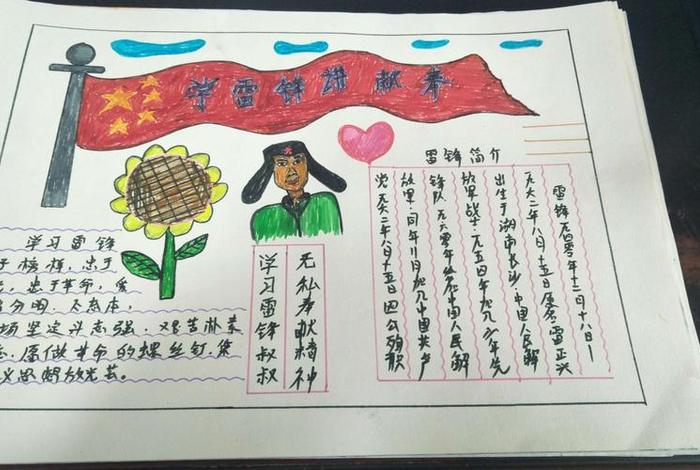 学雷锋讲献奉
雷锋简介
雷锋一九四零年十二月十八日一
一九六二年八月十五日原名雷正兴
出生于湖南长沙,中国人民解
放军战士一九五四年加入少年先
锋队,一九六零年参加中国人民解
放军.同年11月加入中国共产
党一九六二年八月十五日因公殉职
无私奉献精神
学习雷锋叔叔
学习雷锋
榜样,忠于
忠于革命,爱
分明,不忘本,
场坚定斗志强,艰苦朴素
愿做革命的螺丝钉,集
义思想放光芒。